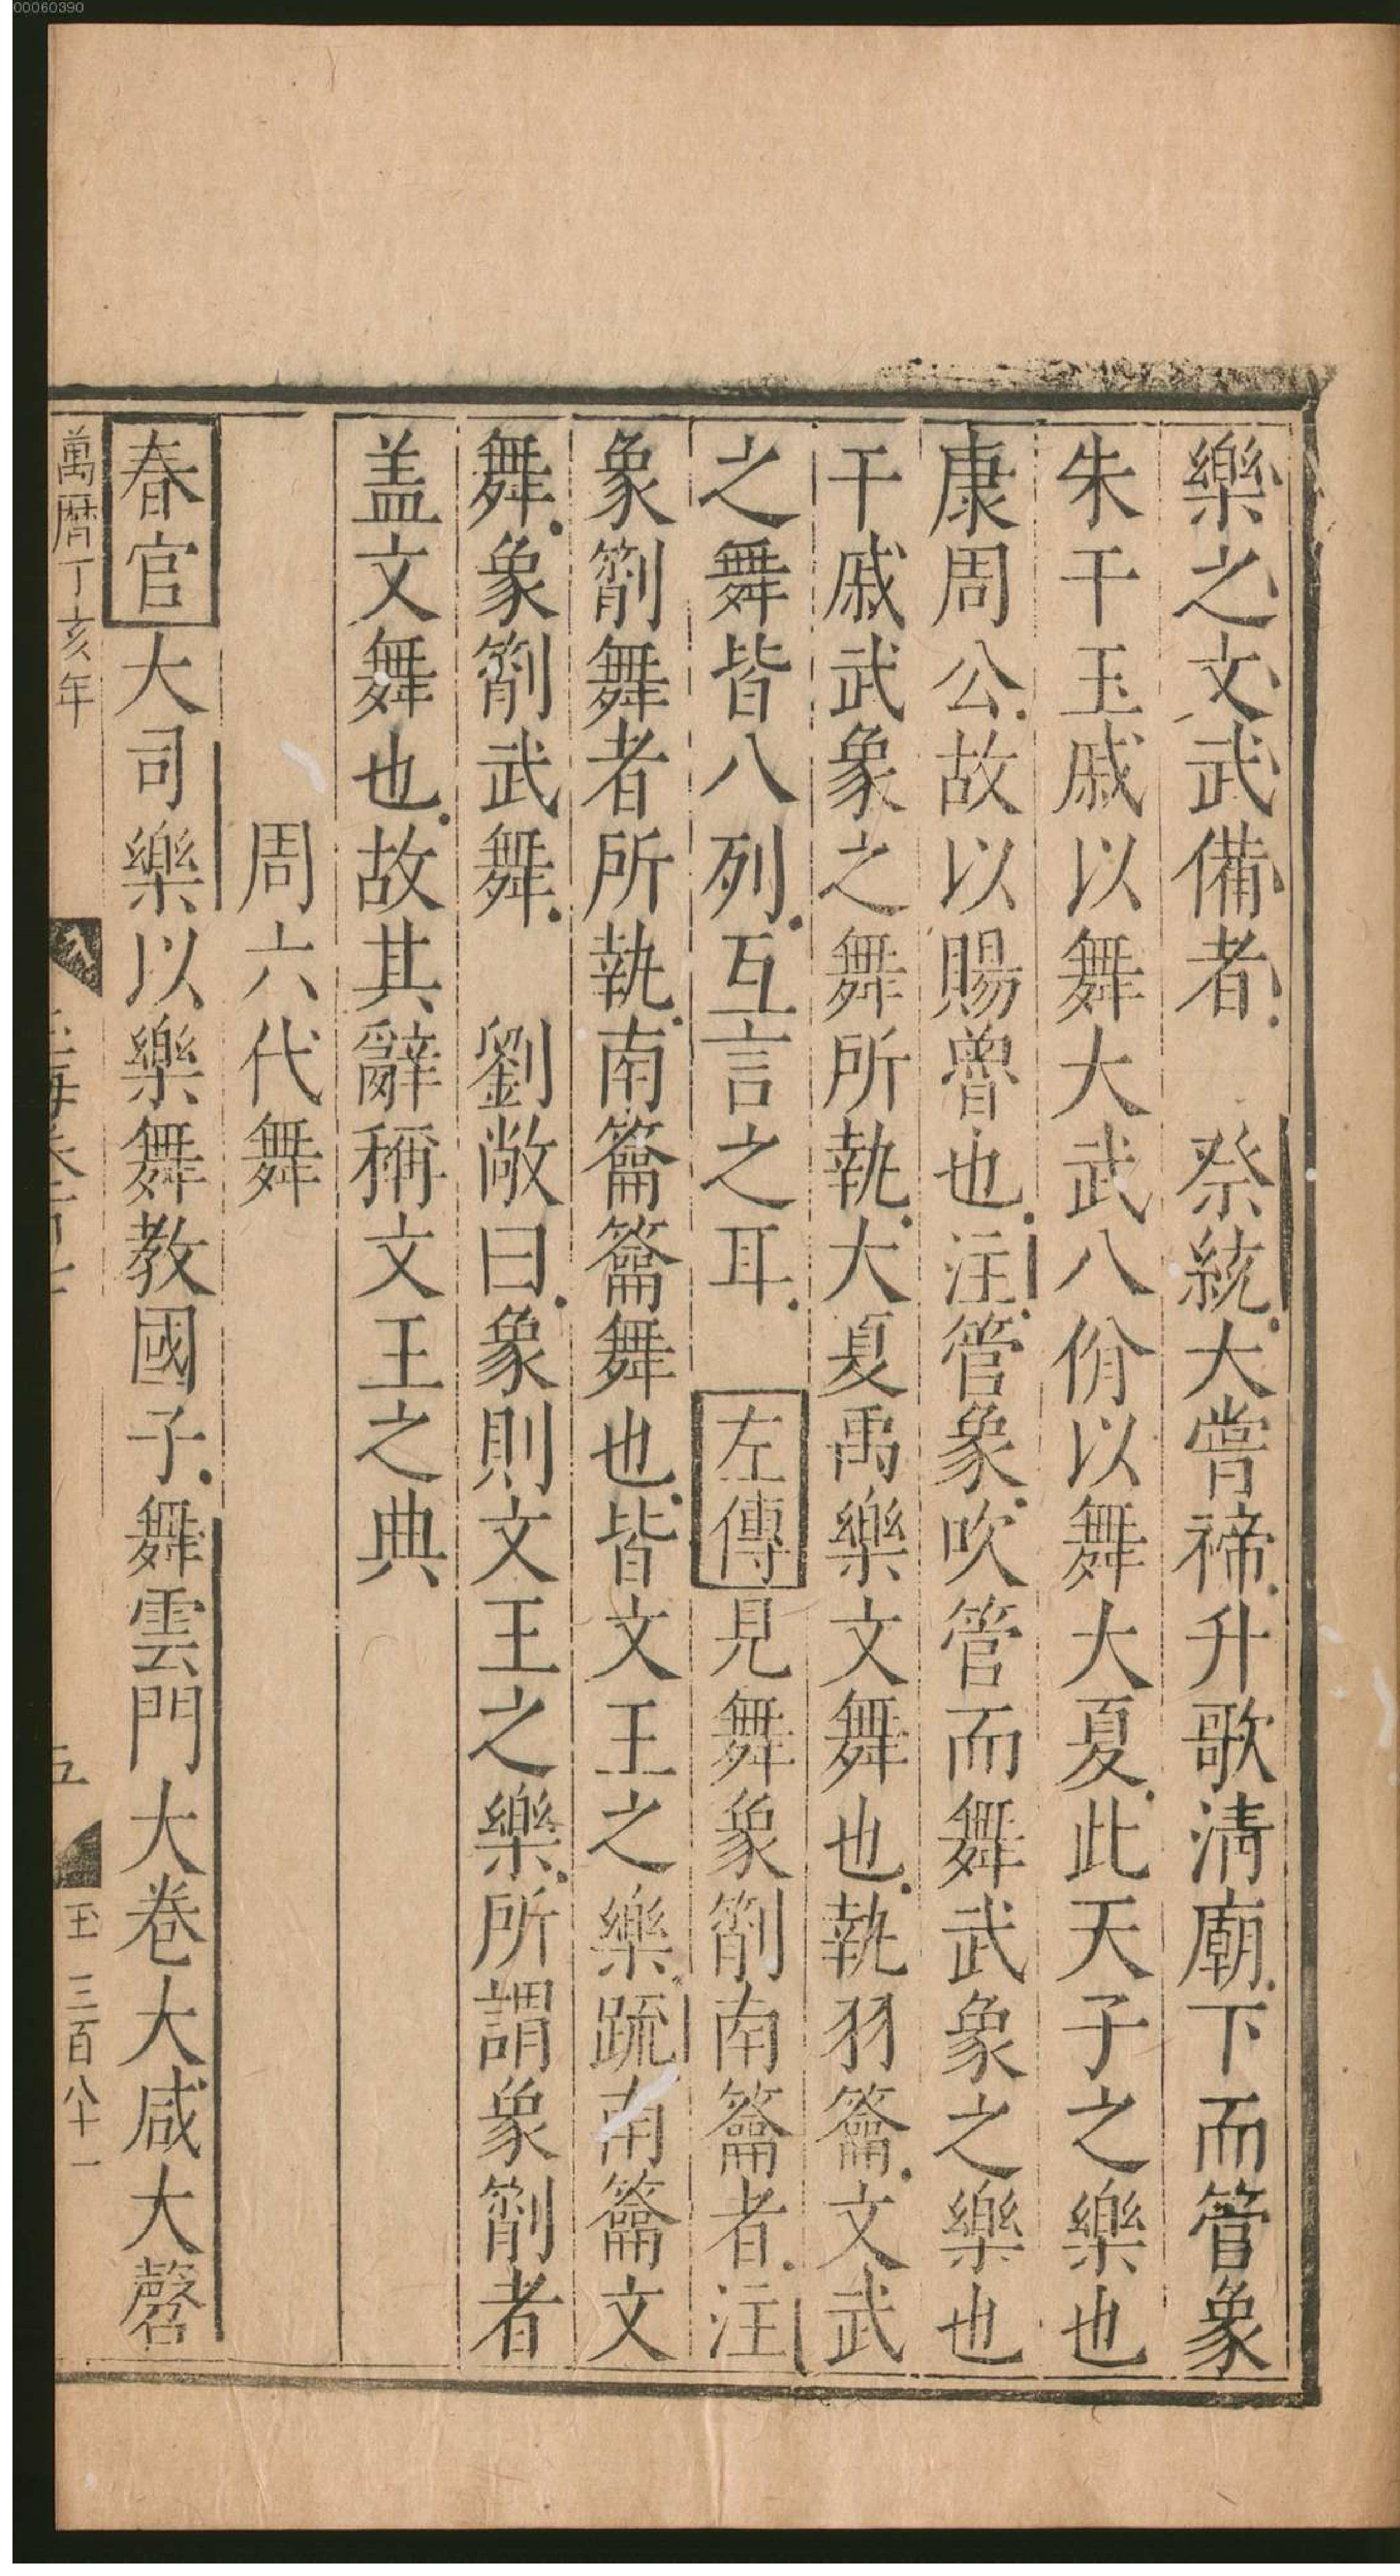 00060390
樂之文武備者　祭統大甞禘升歌清廟下而管象
朱干玉戚以舞大武八佾以舞大夏此天子之樂也
康周公故以賜魯也注管象吹管而舞武象之樂也
干戚武象之舞所執大夏禹樂文舞也執羽籥文武
之舞皆八列互言之耳　左傳見舞象箾南籥者注
象箾舞者所執南籥籥舞也皆文王之樂䟽南籥文
舞象箾武舞　劉敞曰象則文王之樂所謂象箾者
盖文舞也故其辭稱文王之典
周六代舞
春官大司樂以樂舞教國子舞雲門大卷大咸大磬
萬曆丁亥年　五　玉　三百八十一